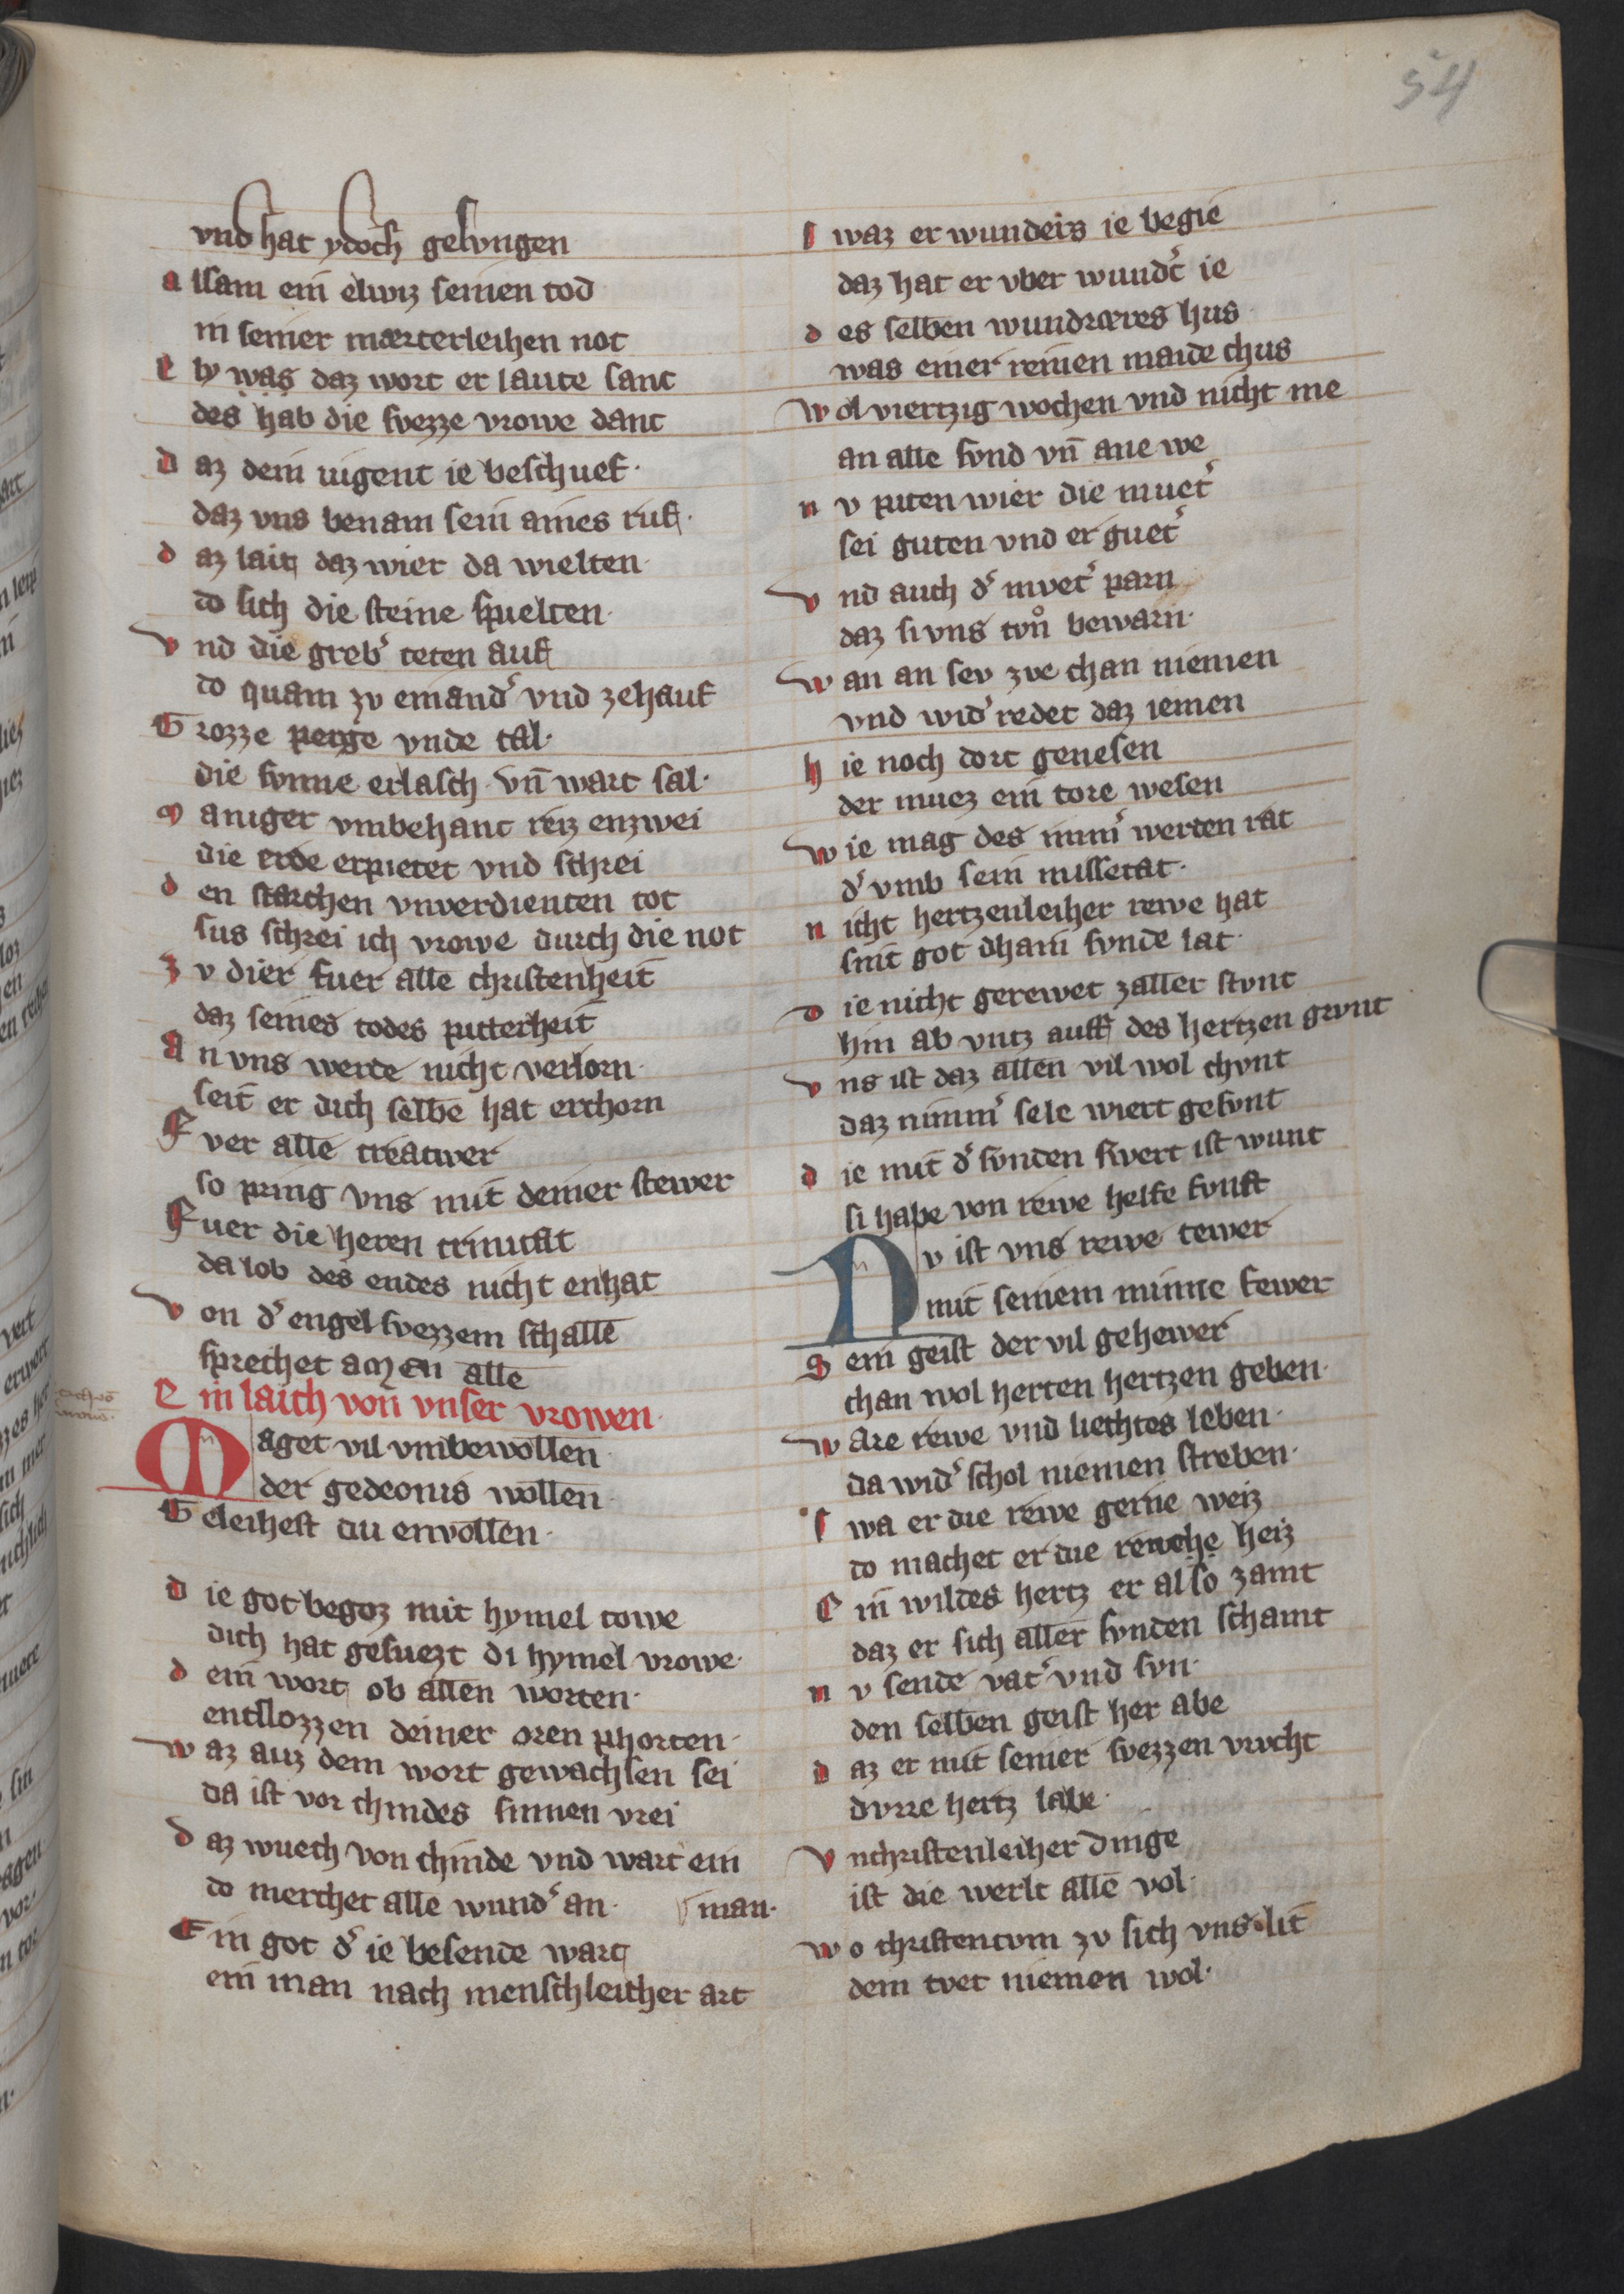 54
vnd hat ydoch gesvngen
alsam ein elwiz seinen tod
in seiner mærterleihen not
Ely was daz wort er laute sanc
des hab die svezze vrowe danc
daz dein iugent ie beschuef·
daz vns benam sein aines ruf·
daz lait daz wier da wielten·
do sich die steine spielten·
vnd die greb͛ teten auf
do quam zv einand͛ vnd zehauf
Grozze perge vnde tal·
die svnne erlasch· vn̄ wart sal·
Maniger vmbehanc reiz enzwei
die erde erpietet vnd schrei
den starchen vnverdienten tot
sus schrei ich vrowe durch die not
Zv dier fuer alle christenheit
daz seines todes pitterheit
An vns werde nicht verlorn·
seit er dich selbe hat erchorn
Fver alle creatwer
so pring vns mit deiner stewer
Fuer die heren trinitat
da lob des endes nicht enhat
von d͛ engel svezzem schalle
sprechet amen alle
Ein laich von vnser vrowen·
Maget vil vmbewollen·
der gedeonis wollen·
Geleihest du envollen·
die got begoz mit hymel towe
dich hat gesuezt di hymel vrowe·
dein wort ob allen worten·
entslozzen deiner oren phorten·
waz auz dem wort gewachsen sei
da ist vor chindes sinnen vrei
daz wuech von chinde vnd wart ein
do merchet alle wund͛ an· man·
Ein got d͛ ie wesende wart
ein man nach menschleicher art
swaz er wunders ie begie
daz hat er vber wund͛t ie
des selben wundræres hus
was einer reinen maide chus
wol viertzig wochen vnd nicht me
an alle svnd vn̄ ane we
nv piten wier die muet͛
sei guten vnd er guet͛
vnd auch d͛ mvet͛ parn
daz si vns tvͦn bewarn·
wan an sev zve chan niemen
vnd wid͛ redet daz iemen
hie noch dort genesen
der muez ein tore wesen
wie mag des nim͛ werden rat
d͛ vmb sein missetat·
nicht hertzenleiher rewe hat
sint got dhain svnde lat·
die nicht gerewet zaller stvnt
hin ab vntz auff des hertzen grvnt
vns ist daz allen vil wol chvnt
daz nimm͛ sele wiert gesvnt
die mit d͛ svnden swert ist wunt
si habe von rewe helfe fvnft
Nv ist vns rewe tewer
mit seinem minne fewer
Sein geist der vil gehewer
chan wol herten hertzen geben·
ware rewe vnd liechtes leben·
da wid͛ schol niemen streben·
swa er die rewe gerne weiz
do machet er die rewehe heiz
Ein wildes hertz er also zamt
daz er sich aller svnden schamt
nv sende vat͛ vnd svn·
den selben geist her abe
daz er mit seiner svezzen vrvcht
dvrre hertz labe·
vnchristenleiher dinge
ist die werlt alle vol·
wo christentvm zv sich vns lit
dem tvet niemen wol·